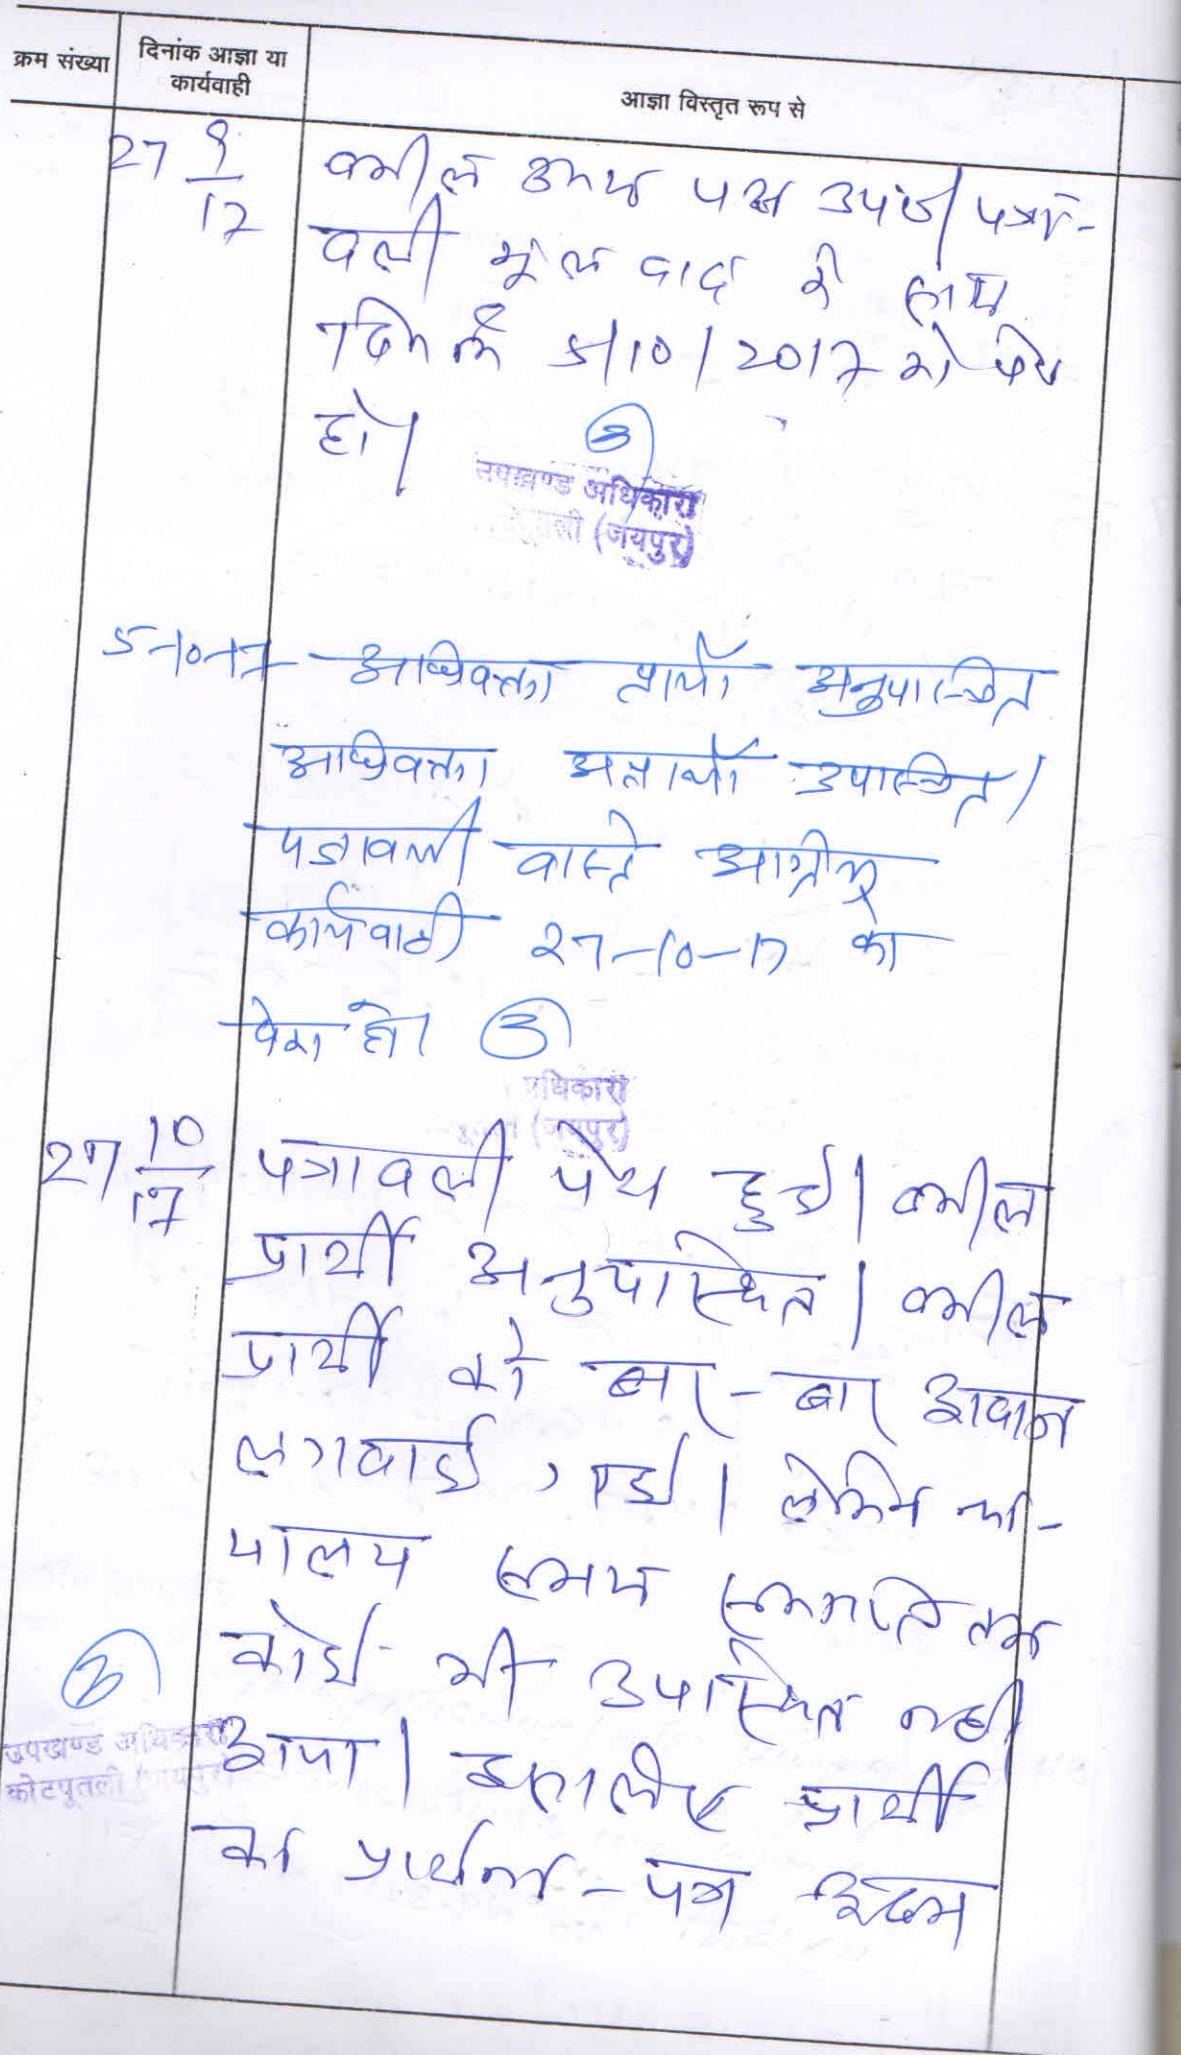 क्रम संख्या
दिनांक आज्ञा या
कार्यवाही
आज्ञा विस्तृत रूप से
27 9/17
वकील उभय पक्ष उप०। पत्रा-
वली मूल वाद के साथ
दिनांक 5/10/2017 को पेश
हो।
उपखण्ड अधिकारी
(जयपुर)
5-10-17
अधिवक्ता प्रार्थी अनुपस्थित
अधिवक्ता अप्रार्थी उपस्थित।
पत्रावली वास्ते अग्रिम
कार्यवाही 27-10-17 को
पेश हो।
अधिकारी
(जयपुर)
27 10/17
पत्रावली पेश हुई। वकील
प्रार्थी अनुपस्थित। वकील
प्रार्थी को बार-बार आवाज
लगवाई गई। लेकिन न्या-
यालय समय समाप्ति तक
कोई भी उपस्थित नहीं
आया। इसलिए प्रार्थी
का प्रार्थना-पत्र अदम
उपखण्ड अधिकारी
कोटपूतली (जयपुर)